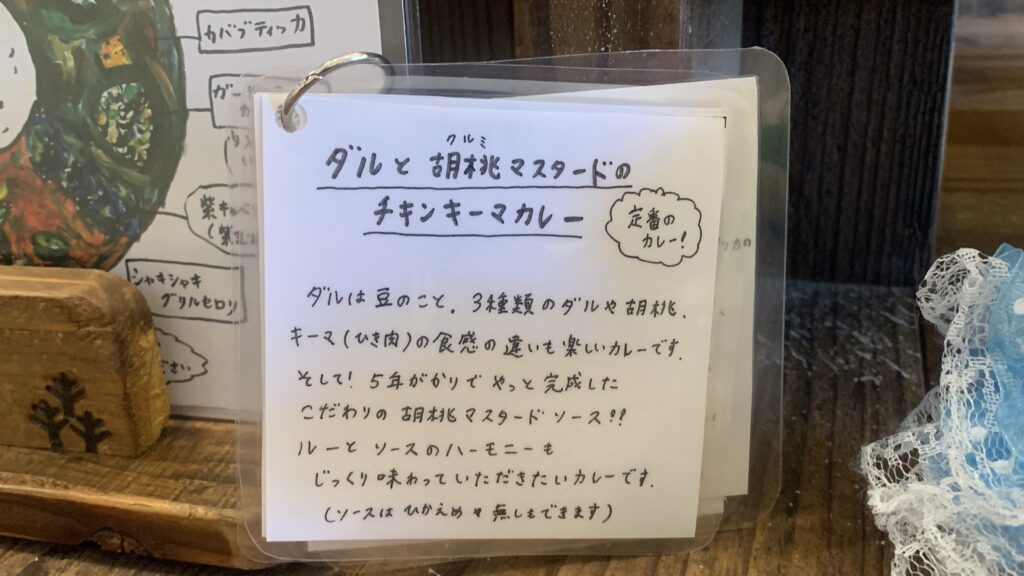 カバブティッカ
ガー
紫キャベ
シャキシャキ
グリルセロリ
ださい
クルミ
ダルと 胡桃マスタードの
チキンキーマカレー
定番の
カレー!
ッカの
ダルは豆のこと。3種類のダルや胡桃、
キーマ(ひき肉)の食感の違いも楽しいカレーです。
そして! 5年がかりで やっと完成した
こだわりの 胡桃マスタードソース!!
ルーと ソースのハーモニーも
じっくり味わっていただきたいカレーです。
(ソースは ひかえめや 無しもできます)